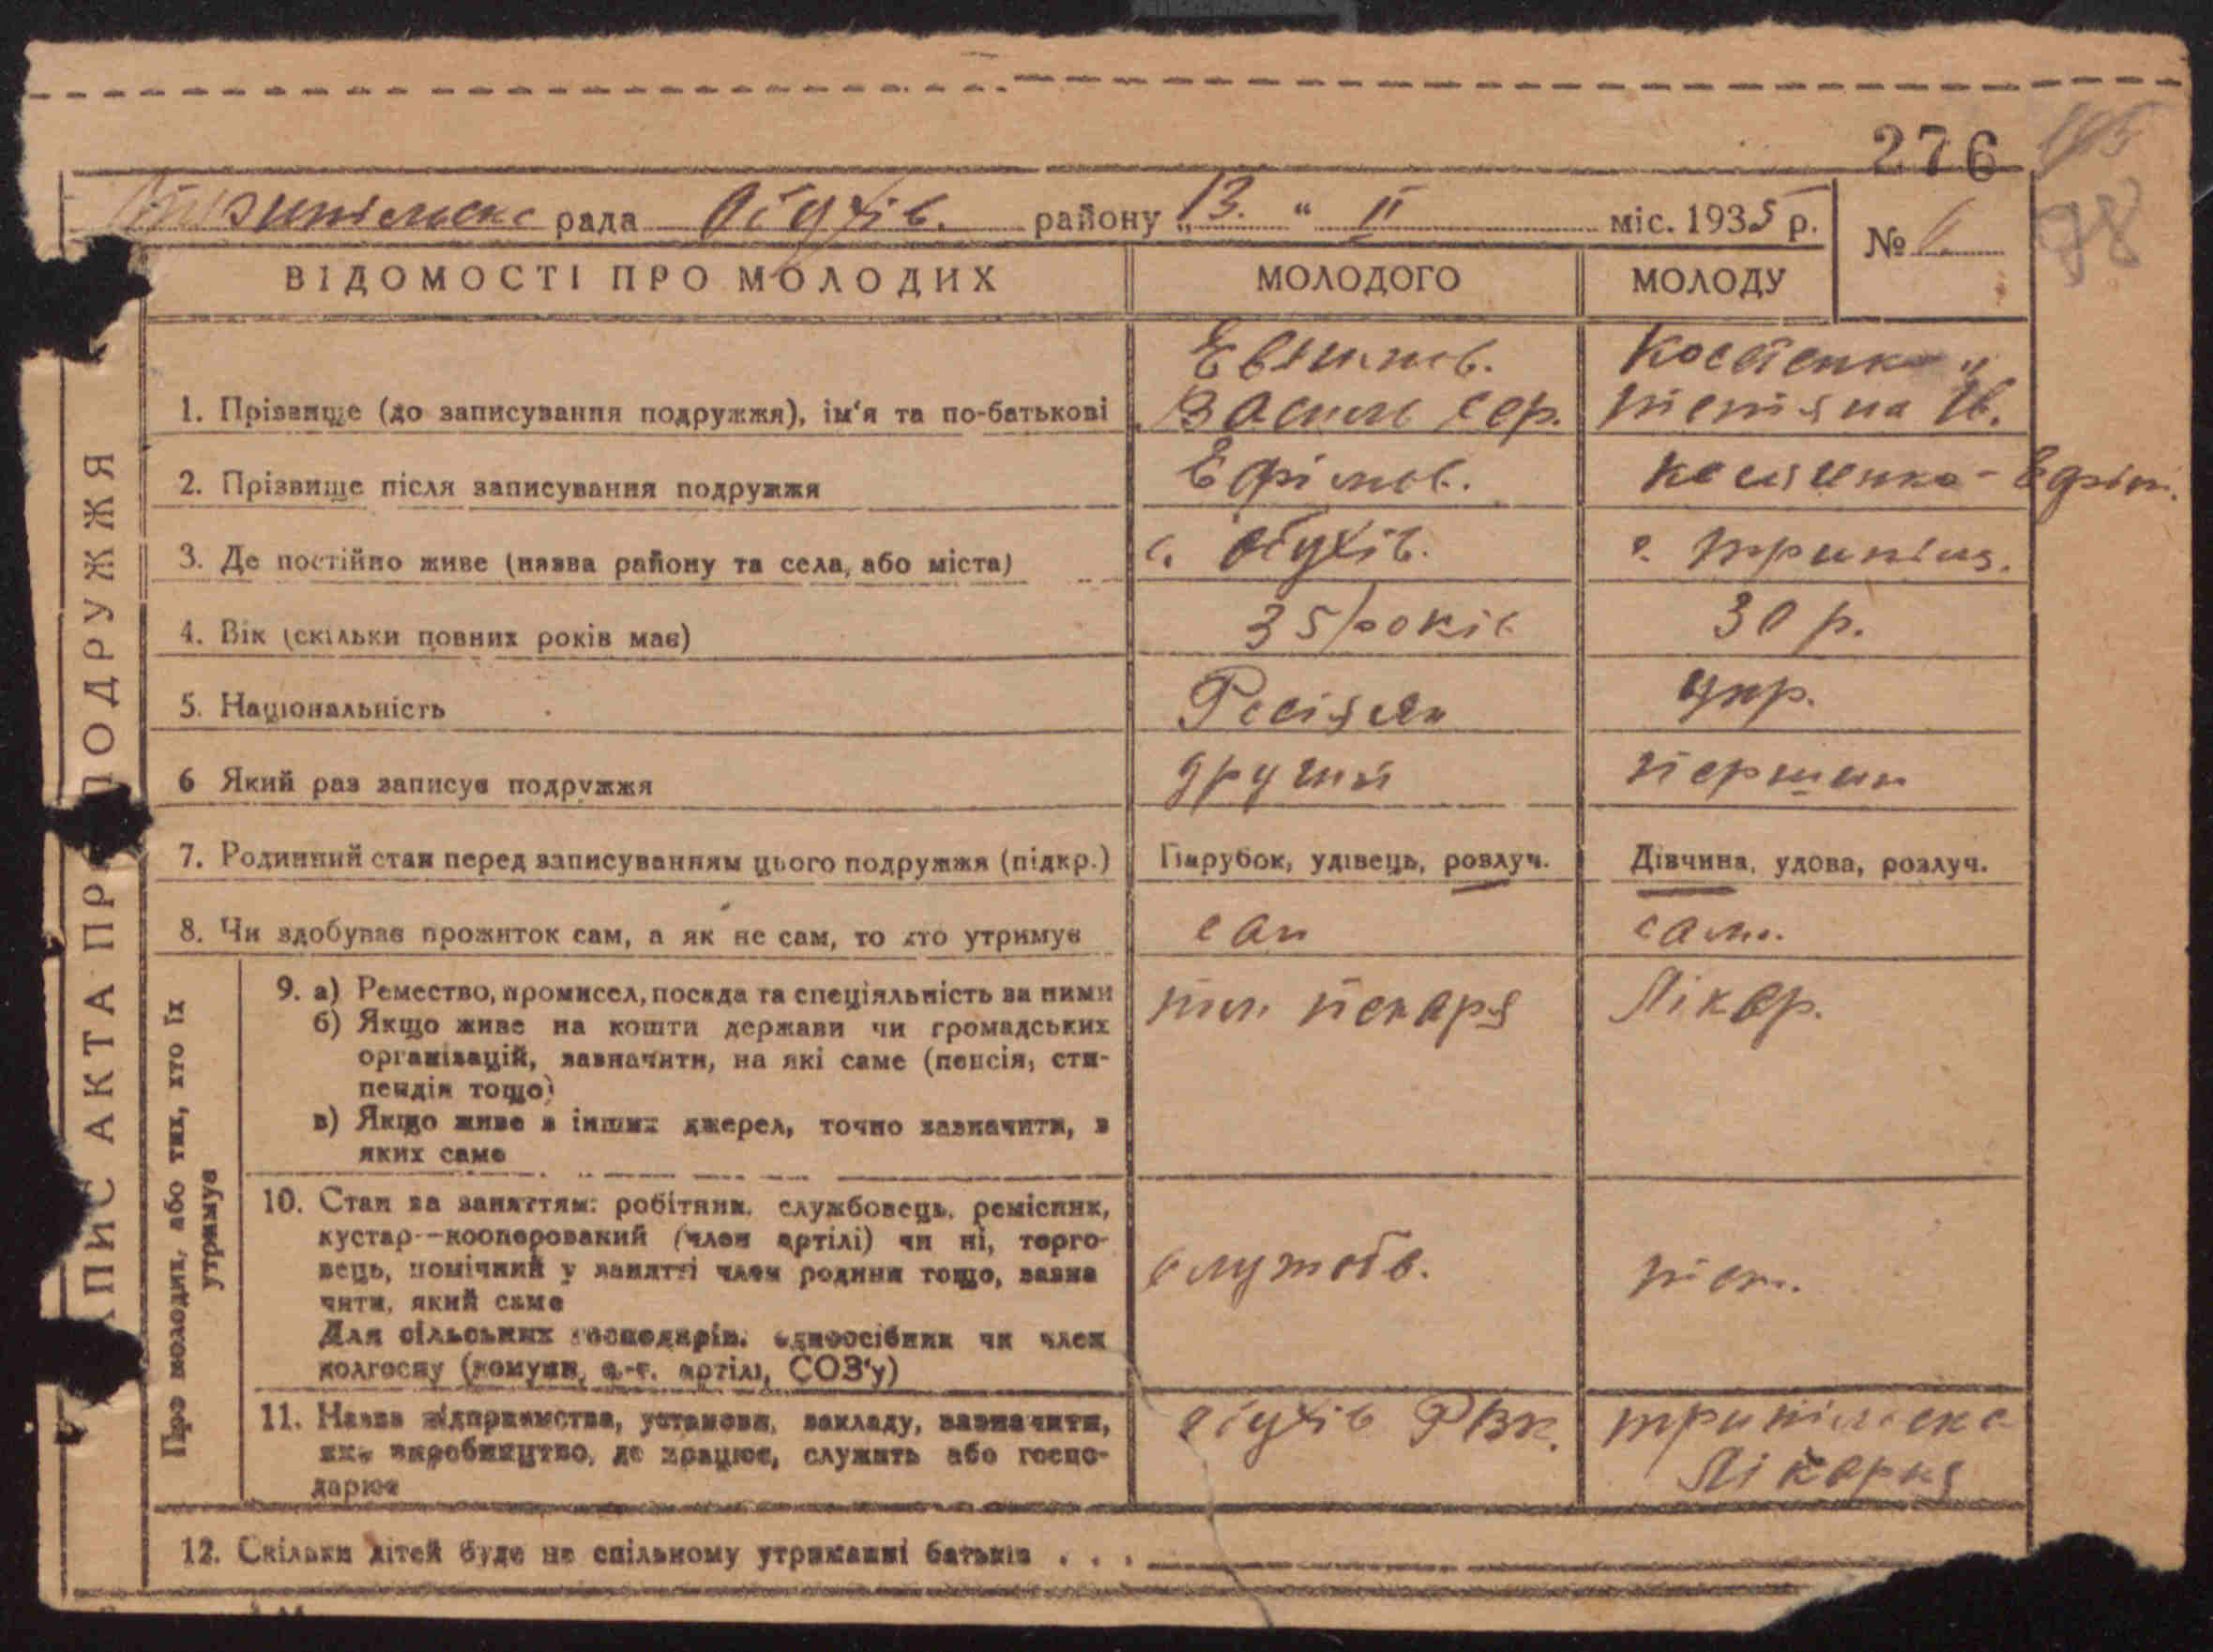 276
98
Трипільска рада Обухів. району „13. “ II міс. 1935 р. № 6
ВІДОМОСТІ ПРО МОЛОДИХ МОЛОДОГО МОЛОДУ
ЗАПИС АКТА ПРО ПОДРУЖЖЯ
1. Прізвище (до записування подружжя), ім‘я та по-батькові Василь Сер. Костенко Тетяна Ів.
2. Прізвище після записування подружжя Ефімов. Костенко-Ефім.
3. Де постійно живе (назва району та села, або міста) с. Обухів. с. Трипілля.
4. Вік (скільки повних років має) 35 років 30 р.
5. Національність Росіянин Укр.
6 Який раз записує подружжя другий перший
7. Родинний стан перед записуванням цього подружжя (підкр.) Парубок, удівець, розлуч. Дівчина, удова, розлуч.
8. Чи здобував прожиток сам, а як не сам, то хто утримує сам сама.
Про молодих, або тих, хто їх утримує
9. а) Ремество, промисел, посада та спеціяльність за ними пекаря Лікар.
б) Якщо живе на кошти держави чи громадських
організацій, зазначити, на які саме (пенсія, сти-
пендія тощо)
в) Якщо живе з інших джерел, точно зазначити, з
яких саме
10. Стан за заняттям: робітник, службовець, ремісник,
кустар--кооперований (член артілі) чи ні, торго-
вець, помічний у занятті член родини тощо, зазна
чити, який саме службв.
Для сільських господарів: одноосібник чи член
колгоспу (комуни, с.-г. артілі, СОЗ‘у)
11. Назва підприємства, установи, закладу, зазначити, Обухів РВК. Трипільска
яке виробництво, де працює, служить або госпо- Лікарня
дарює
12. Скільки дітей буде на спільному утриманні батьків . . .